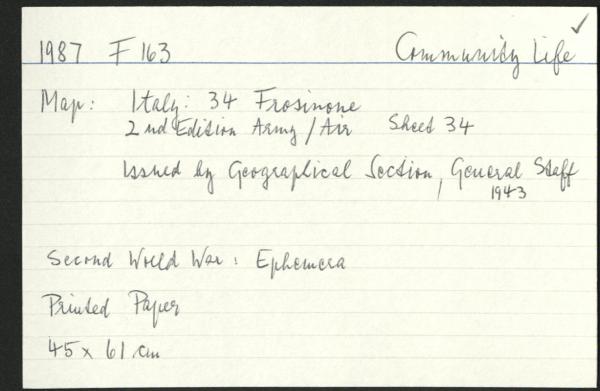 1987 F 163 Community Life ✓
Map: Italy: 34 Frosinone
2nd Edition Army/Air Sheet 34
Issued by Geographical Section, General Staff
1943
Second World War: Ephemera
Printed Paper
45 x 61 cm